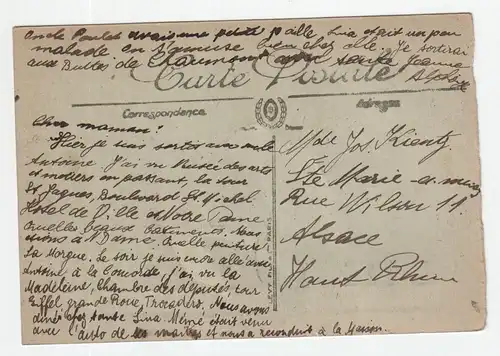 oncle Paulet avait une petite
Lina était un peu
malade on s'amuse bien chez elle. Je sortirai
aux Buttes de Chaumont avec tante Jeanne
Carte Postale
Correspondance
Adresse
Cher maman!
Hier je suis sortie
Antoine. J'ai vu Musée des arts
et métiers en passant, la tour
St Jaques, Boulevard St Michel
Hotel de Ville et Notre Dame
quelles beaux bâtiments. Nous
étions à N. Dame. Quelle peinture
La Morgue. Le soir je suis encore allé avec
Antoine à la Concorde, j'ai vu la
Madeleine, Chambre des députés, tour
Eiffel grande Roue, Trocadéro. Nous avons
diné chez tante Lina. Mémé était venu
avec l'auto de ses maitres et nous a reconduit à la Maison.
LEVY FILS & Cie PARIS
Mde Jos. Kientz
Ste Marie-a-mines
Rue Wilson 11
Alsace
Haut Rhin